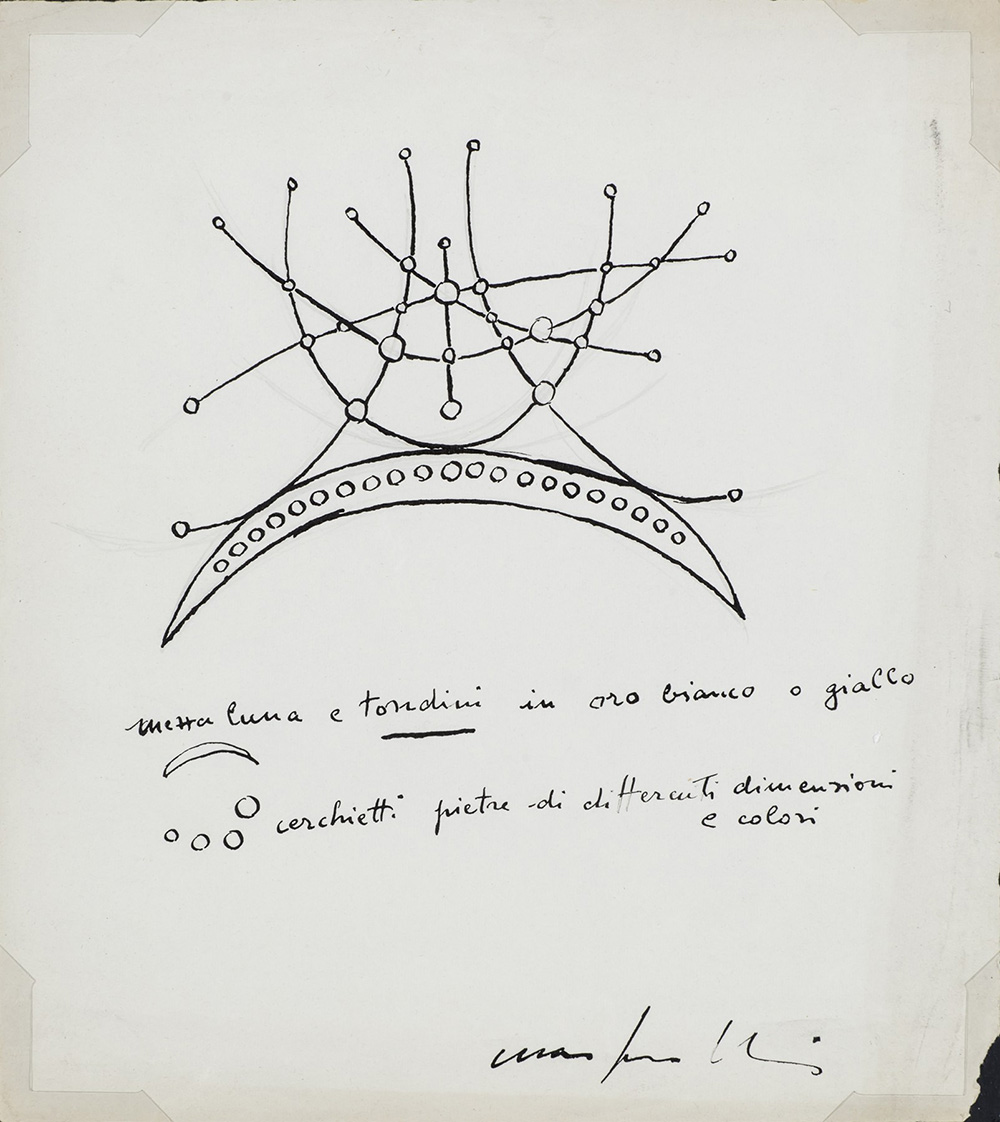 mezza luna e tondini in oro bianco o giallo
cerchietti pietre di differenti dimensioni
e colori